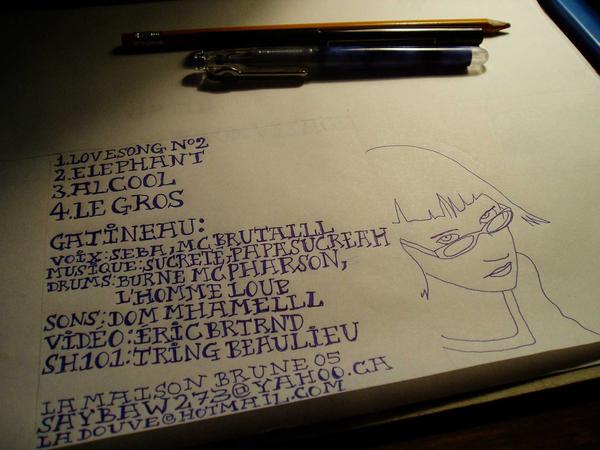 1. LOVESONG Nº2
2. ELEPHANT
3. ALCOOL
4. LE GROS
GATINEAU:
VOIX: SEBA, M.C. BRUTALLL
MUSIQUE: SUCRETE, PAPASUCREAH
DRUMS: BURNE MCPHARSON,
L'HOMME LOUP
SONS: DOM MHAMELLL
VIDÉO: ÉRIC BRTRND
SH101: TRING BEAULIEU
LA MAISON BRUNE 05
SAYBAW273@YAHOO.CA
LADOUVE@HOTMAIL.COM